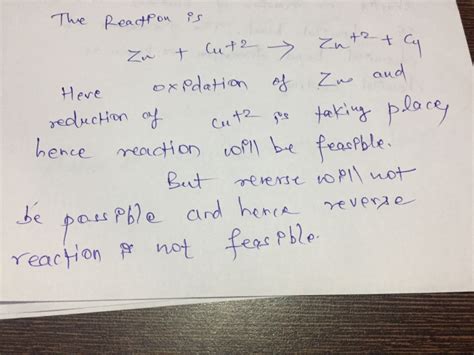 The Reaction is
Zn + Cu+2 → Zn+2 + Cu
Here oxidation of Zn and
reduction of Cu+2 is taking place,
hence reaction will be feasible.
But reverse will not
be possible and hence reverse
reaction is not feasible.